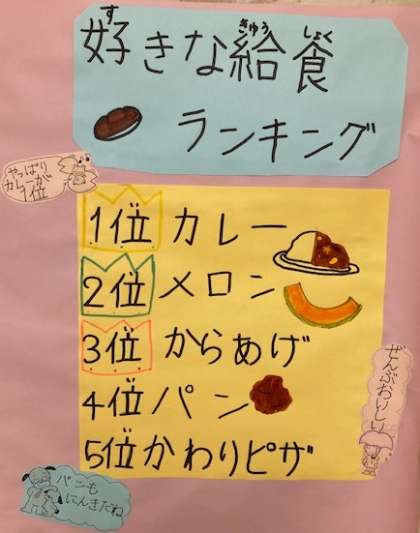 好きな給食
す
きゅう
しょく
ランキング
やっぱり
カレーが
1位
1位 カレー
2位 メロン
3位 からあげ
4位 パン
5位 かわりピザ
ぜんぶおいしい
パンも
にんきだね